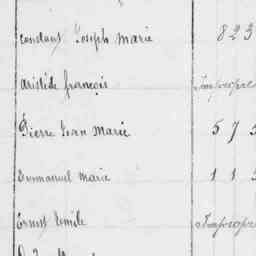 constant Joseph Marie 823
aristide françois Impropre
Pierre Jean Marie 575
Emmanuel Marie 113
Ernest Emile Impropre